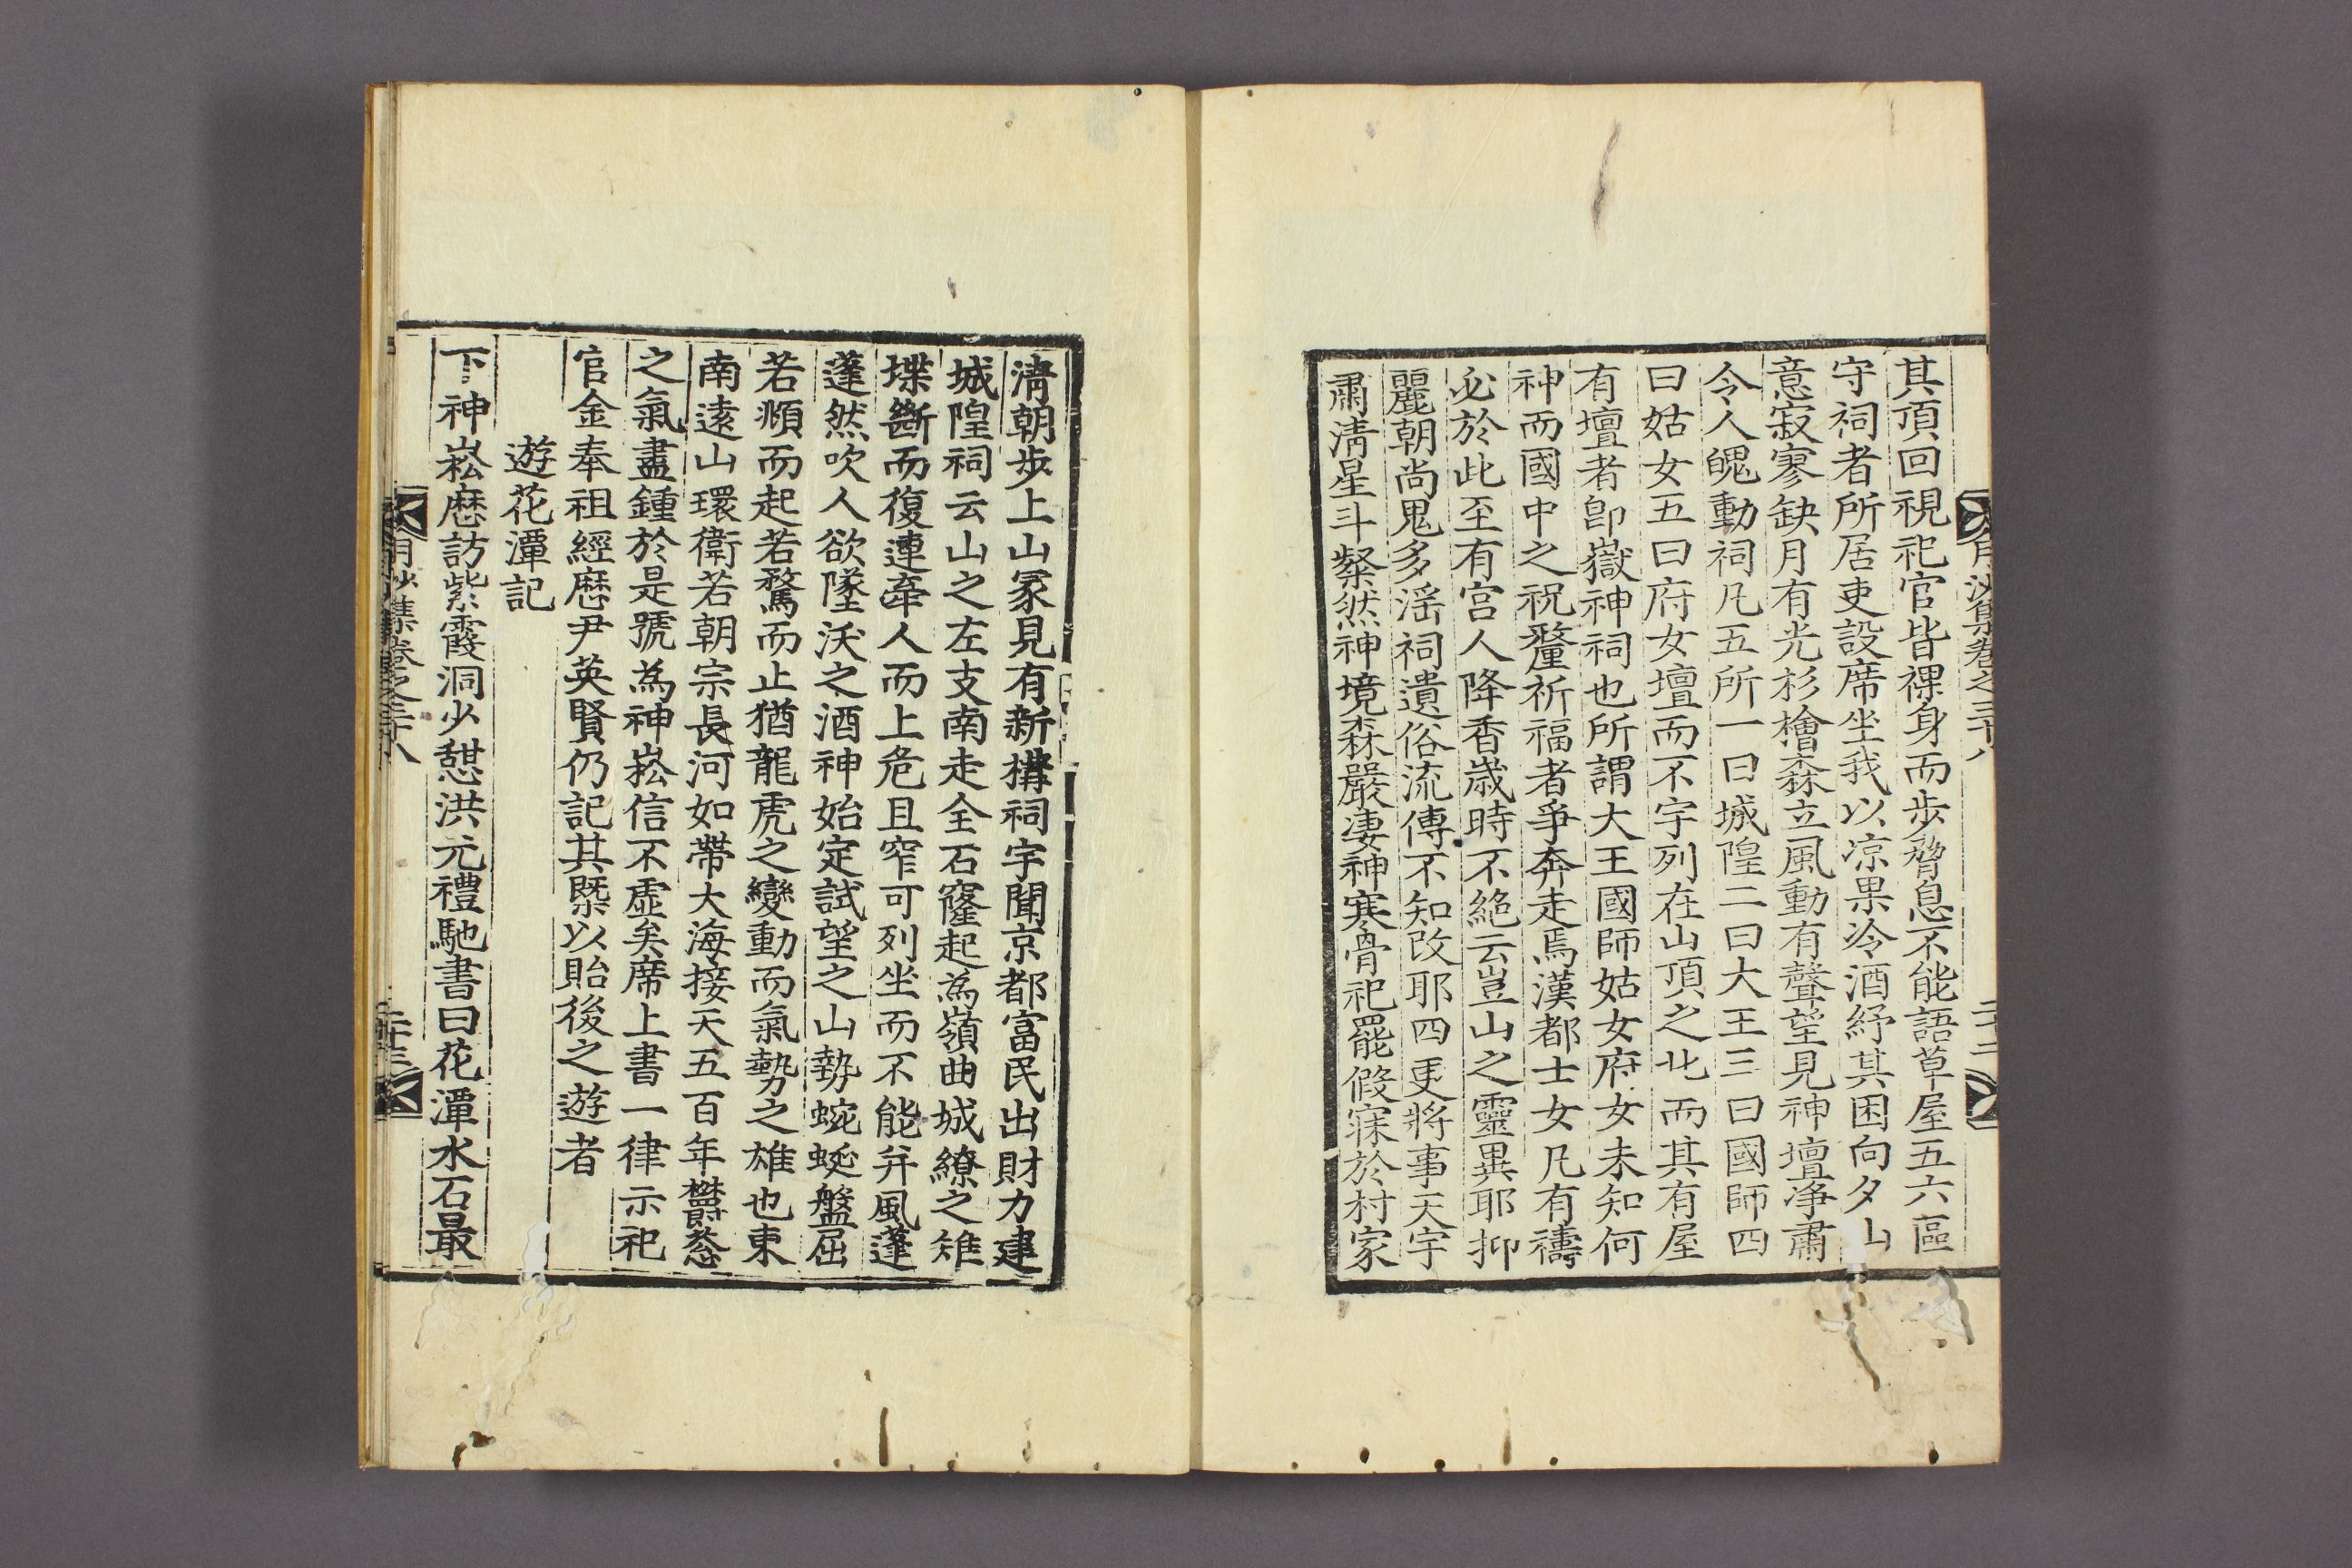 其頂回視祀官皆裸身而步脅息不能語草屋五六區
守祠者所居吏設席坐我以凉果冷酒紓其困向夕山
意寂寥缺月有光杉檜森立風動有聲望見神壇淨肅
令人魄動祠凡五所一曰城隍二曰大王三曰國師四
曰姑女五曰府女壇而不宇列在山頂之北而其有屋
有壇者卽嶽神祠也所謂大王國師姑女府女未知何
神而國中之祝釐祈福者爭奔走焉漢都士女凡有禱
必於此至有宮人降香歲時不絶云豈山之靈異耶抑
麗朝尚鬼多滛祠遺俗流傳不知改耶四更將事天宇
肅淸星斗粲然神境森嚴凄神寒骨祀罷假寐於村家
月沙集卷之三十八
二十二
淸朝步上山冡見有新構祠宇聞京都富民出財力建
城隍祠云山之左支南走全石窿起爲嶺曲城繚之雉
堞斷而復連牽人而上危且窄可列坐而不能幷風蓬
蓬然吹人欲墜沃之酒神始定試望之山勢蜿蜒盤屈
若頫而起若騖而止猶龍虎之變動而氣勢之雄也東
南遠山環衛若朝宗長河如帶大海接天五百年欝葱
之氣盡鍾於是號爲神崧信不虛矣席上書一律示祀
官金奉祖經歷尹英賢仍記其槩以貽後之遊者
遊花潭記
下神崧歷訪紫霞洞少憩洪元禮馳書曰花潭水石最
月沙集卷之三十八
二十三